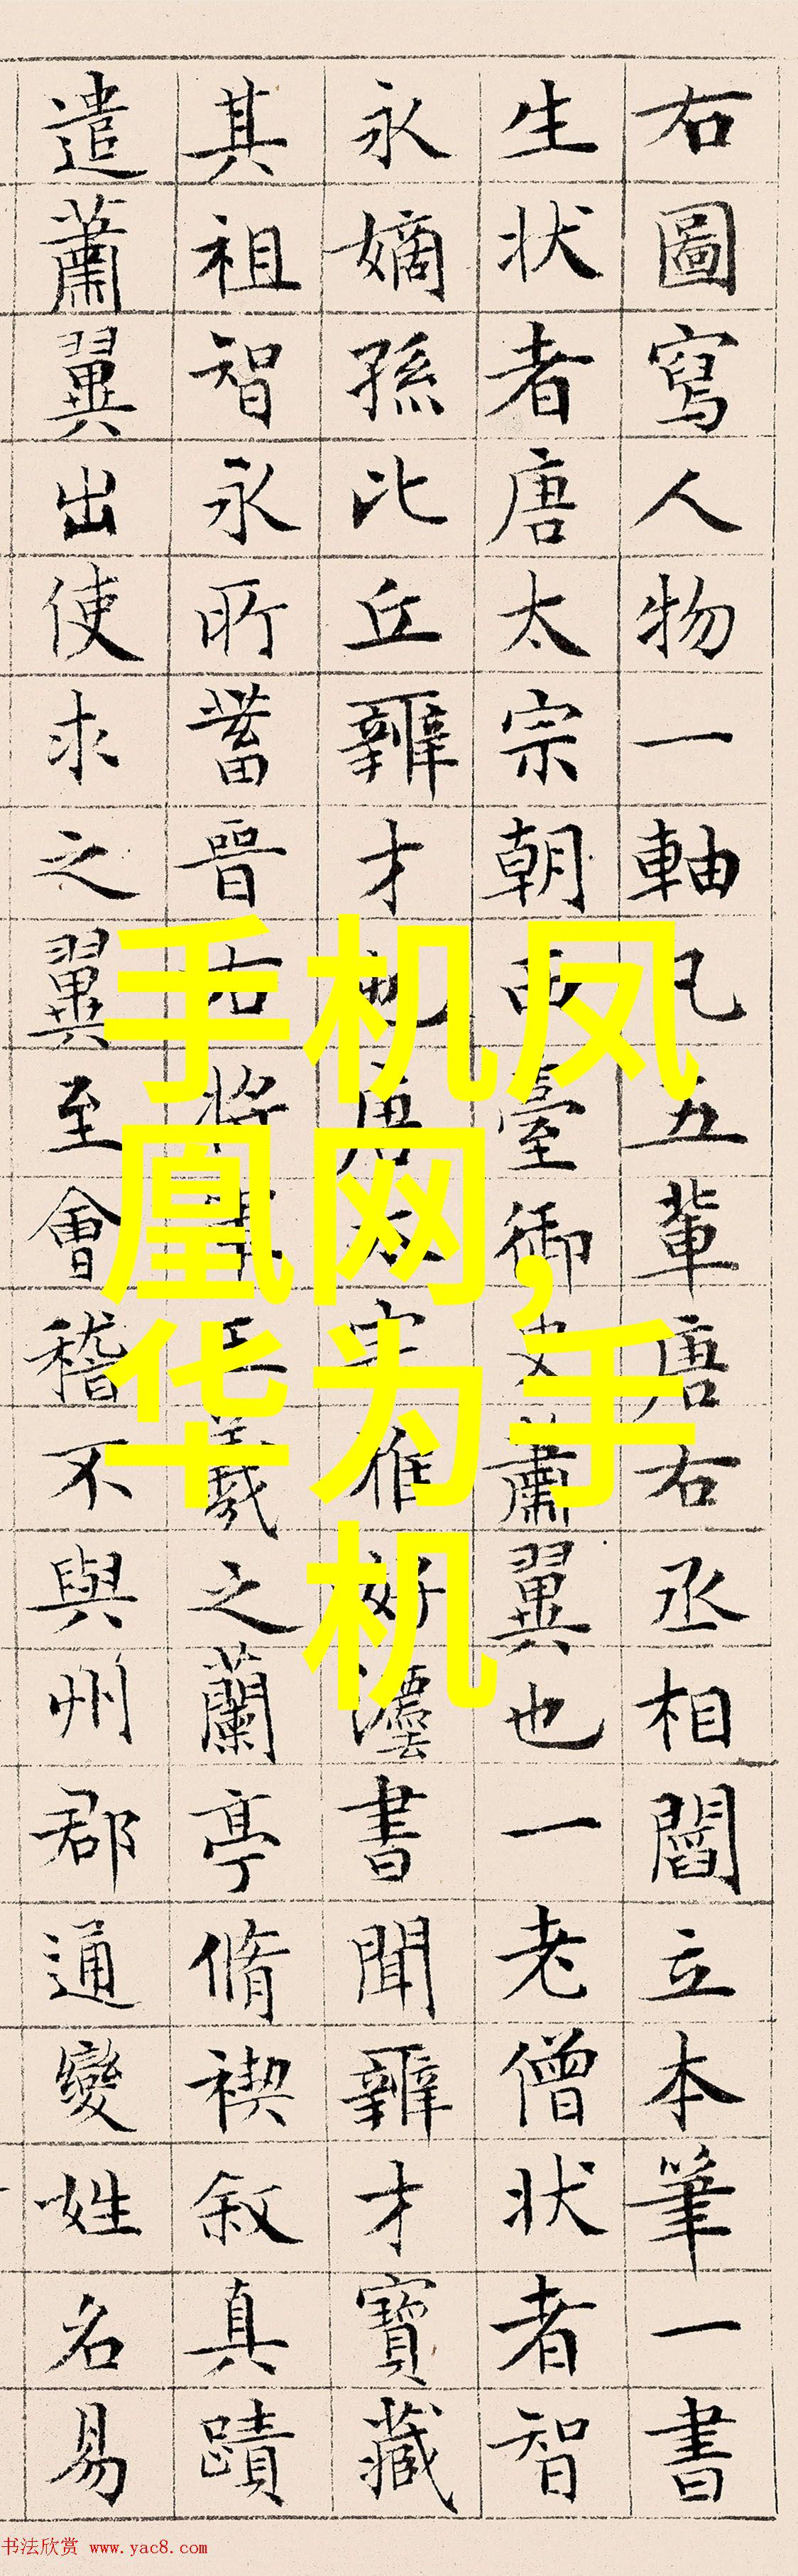 右圖寫人物一軸凡五輩唐右丞相閻立本筆一書
生狀者唐太宗朝西臺御史蕭翼也一老僧狀者智
永嫡孫比丘辨才也唐太宗雅好灋書聞辨才寶藏
其祖智永所蓄晉右將軍王羲之蘭亭脩禊叙真蹟
遣蕭翼出使求之翼至會稽不與州郡通變姓名易
手机凤
凰网,
华为手
机
书法欣赏 www.yac8.com